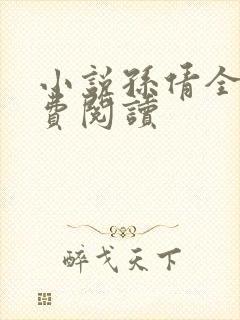 小說孫倩全
費閱讀
醉戈天下